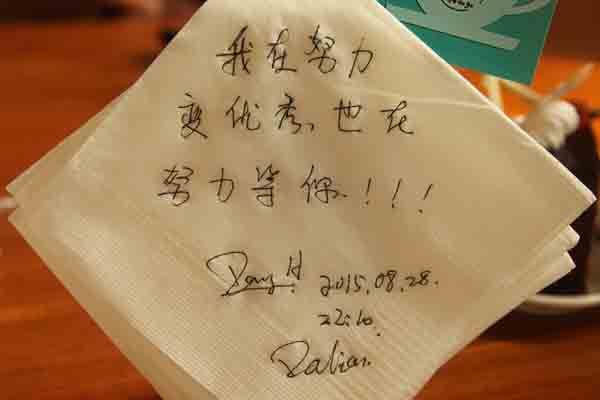 我在努力
变优秀、也在
努力等你!!!
2015.08.28.
22:10.
Dalian.